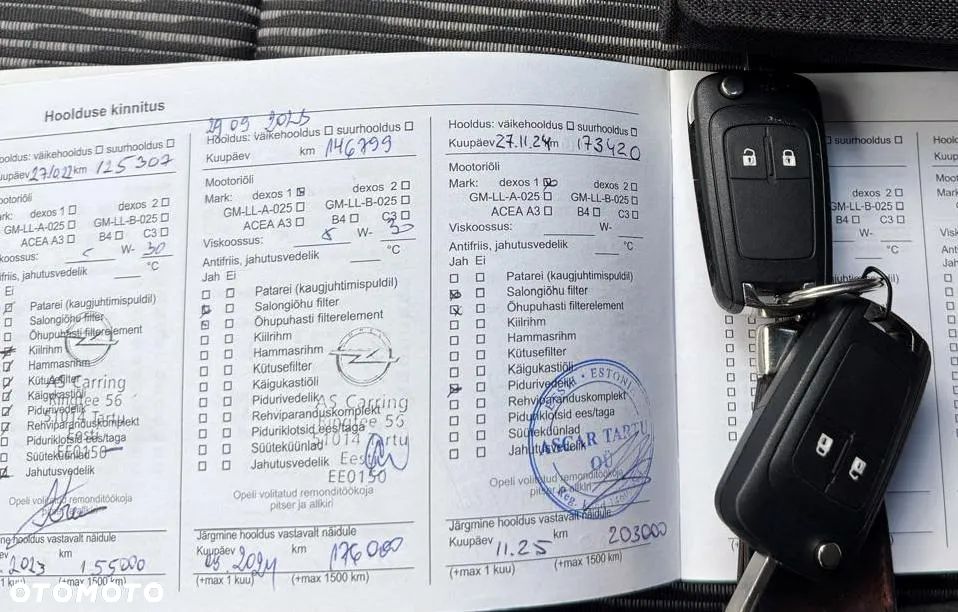 Hoolduse kinnitus
ooldus: väikehooldus suurhooldus
km 125307
ootoriõli
ark: dexos 1 dexos 2
GM-LL-A-025 GM-LL-B-025
ACEA A3 B4 C3
koossus: W- 30
Antifriis, jahutusvedelik °C
Ei
Patarei (kaugjuhtimispuldil)
Salongiõhu filter
Õhupuhasti filterelement
Kiilrihm
Hammasrihm
Kütusefilter
Käigukastiõli
Pidurivedelik
Rehviparanduskomplekt
Piduriklotsid ees/taga
Süüteküünlad
Jahutusvedelik
AS Carring
Ringtee 56
51014 Tartu
Eesti
EE0150
Opeli volitatud remonditöökoja
pitser ja allkiri
ne hooldus vastavalt näidule
km
2023 155000
1 kuu) (+max 1500 km)
29 09
Hooldus: väikehooldus suurhooldus
Kuupäev km 146799
Mootoriõli
Mark: dexos 1 dexos 2
GM-LL-A-025 GM-LL-B-025
ACEA A3 B4 C3
Viskoossus: 5 W- 30
Antifriis, jahutusvedelik °C
Jah Ei
Patarei (kaugjuhtimispuldil)
Salongiõhu filter
Õhupuhasti filterelement
Kiilrihm
Hammasrihm
Kütusefilter
Käigukastiõli
Pidurivedelik
Rehviparanduskomplekt
Piduriklotsid ees/taga
Süüteküünlad
Jahutusvedelik
OPEL
AS Carring
Ringtee 56
51014 Tartu
Eesti
EE0150
Opeli volitatud remonditöökoja
pitser ja allkiri
Järgmine hooldus vastavalt näidule
Kuupäev km
2024 176000
(+max 1 kuu) (+max 1500 km)
Hooldus: väikehooldus suurhooldus
Kuupäev 27.11.24 km 173420
Mootoriõli
Mark: dexos 1 dexos 2
GM-LL-A-025 GM-LL-B-025
ACEA A3 B4 C3
Viskoossus: W-
Antifriis, jahutusvedelik °C
Jah Ei
Patarei (kaugjuhtimispuldil)
Salongiõhu filter
Õhupuhasti filterelement
Kiilrihm
Hammasrihm
Kütusefilter
Käigukastiõli
Pidurivedelik
Rehviparanduskomplekt
Piduriklotsid ees/taga
Süüteküünlad
Jahutusvedelik
ASCAR TARTU
OÜ
Opeli volitatud remonditöökoja
pitser ja allkiri
Järgmine hooldus vastavalt näidule
Kuupäev 11.25 km 203000
(+max 1 kuu) (+max 1500 km)
suurhooldus
km
dexos 2
GM-LL-B-025
B4 C3
W-
°C
Hoold
Kuup
Mooto
Mark:
Visko
Antif
Jah
OTOMOTO